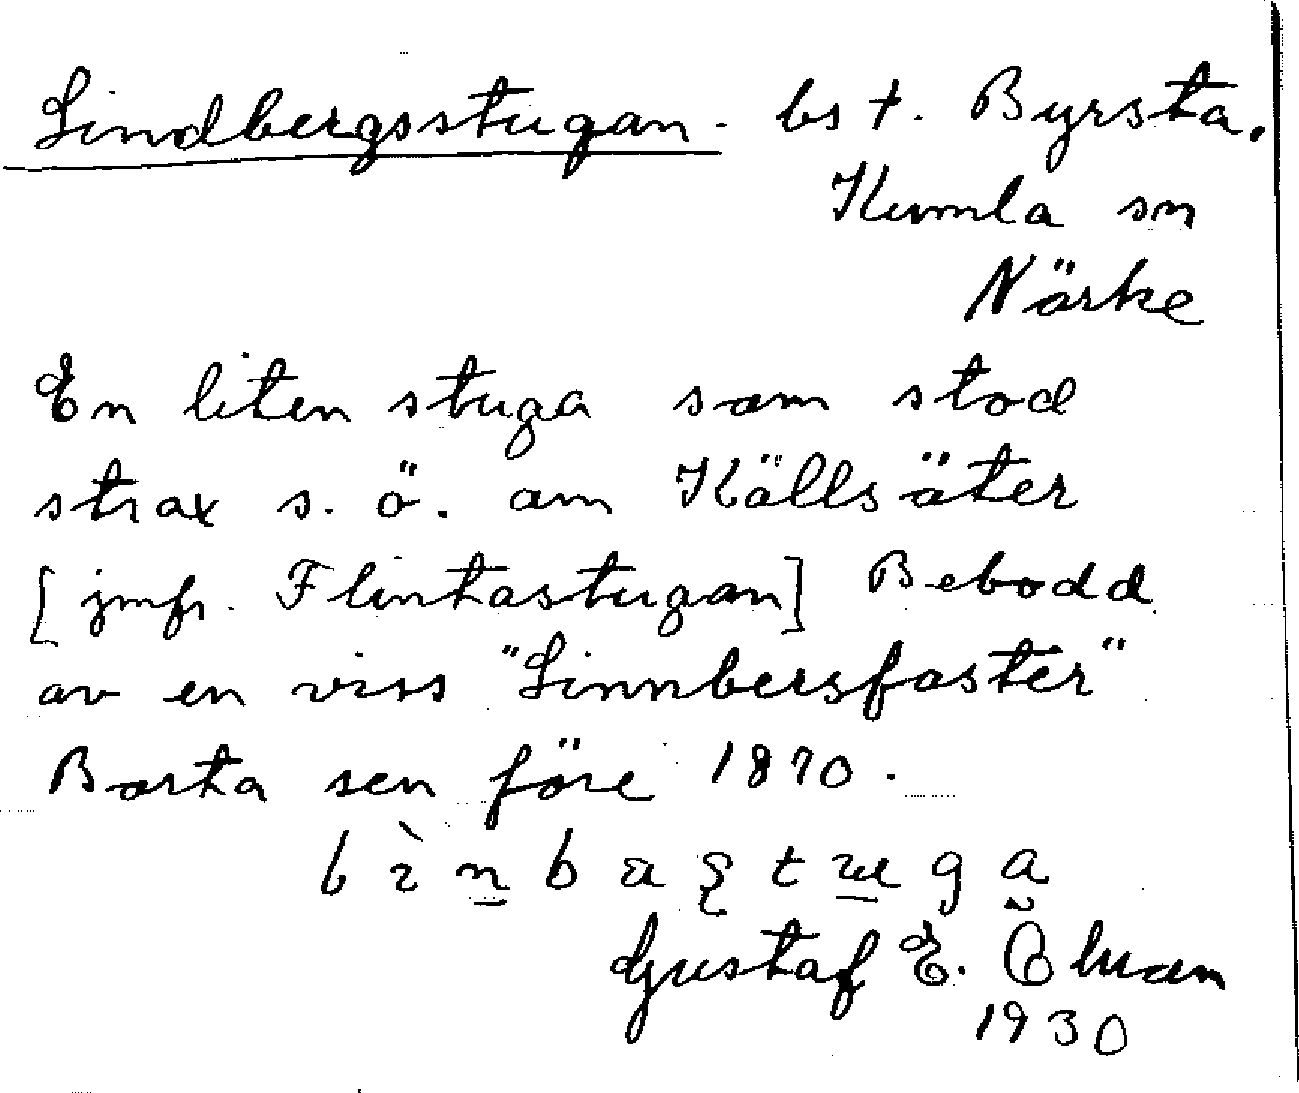 Lindbergsstugan. bs t. Byrsta.
Kumla sn
Närke
En liten stuga som stod
strax s. ö. om Källsäter
[jmfr. Flintastugan] Bebodd
av en viss "Linnbersfaster"
Borta sen före 1870.
Gustaf E.
1930